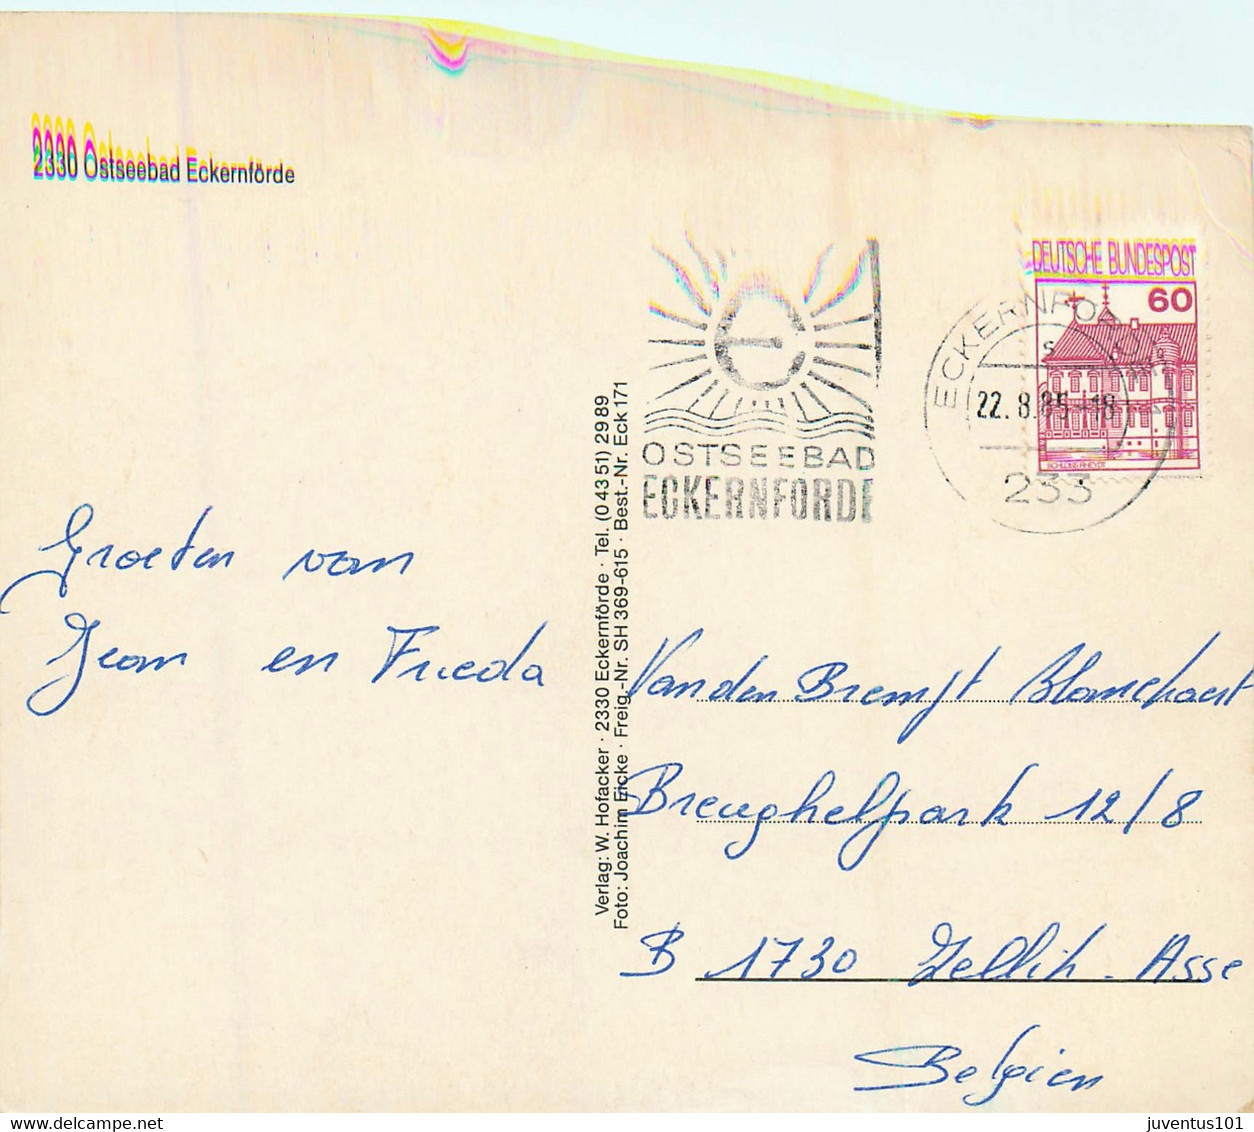 2330 Ostseebad Eckernförde
DEUTSCHE BUNDESPOST
60
SCHLOSS RHEYDT
22. 8.85-18
233
OSTSEEBAD
ECKERNFÖRDE
Groeten van
Jean en Frieda
Verlag: W. Hofacker · 2330 Eckernförde · Tel. (0 43 51) 29 89
Foto: Joachim Eicke · Freig.-Nr. SH 369-615 · Best.-Nr. Eck 171
Van den Bremst Blanckaert
Breughelpark 12/8
B 1730 Zellik - Asse
Belgien
juventus101